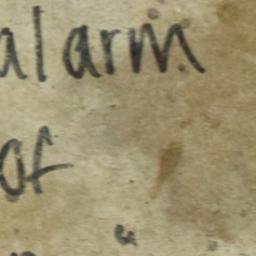 alarm
of